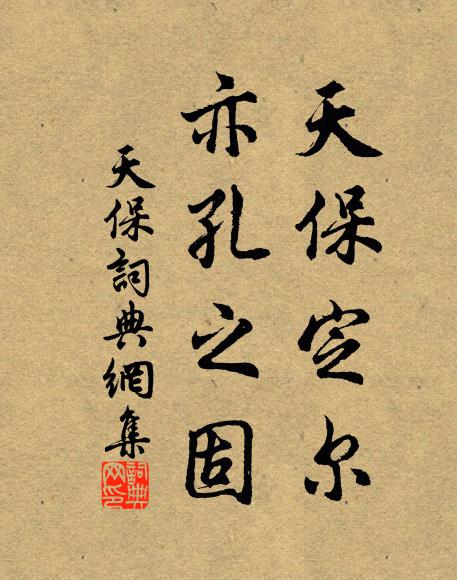 天保定尔
亦孔之固
天保詞典網集
詞典
网印